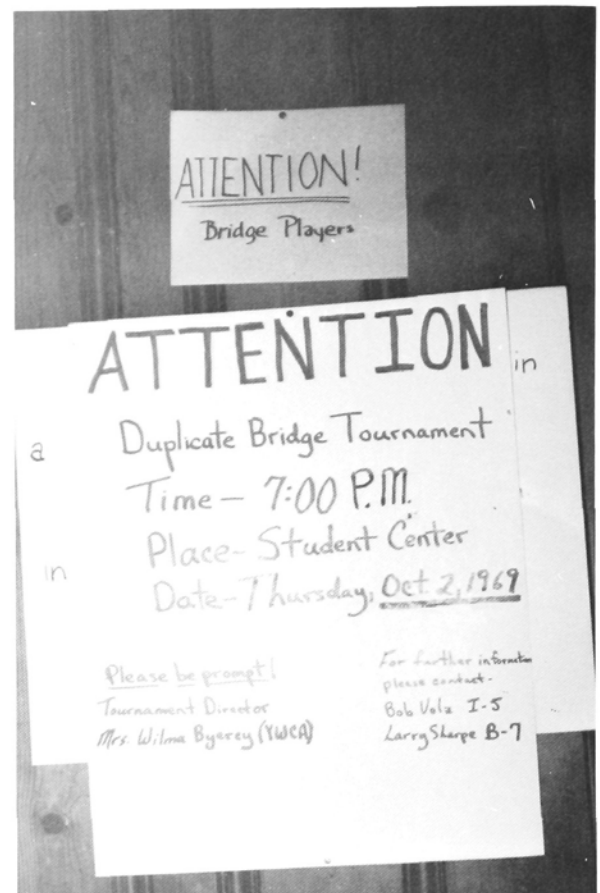 ATTENTION!
Bridge Players
ATTENTION
in
a
Duplicate Bridge Tournament
Time - 7:00 P.M.
Place - Student Center
in
Date - Thursday, Oct 2, 1969
Please be prompt!
Tournament Director
Mrs. Wilma Byerey (YWCA)
For further information
please contact -
Bob Volz I-5
Larry Sharpe B-7